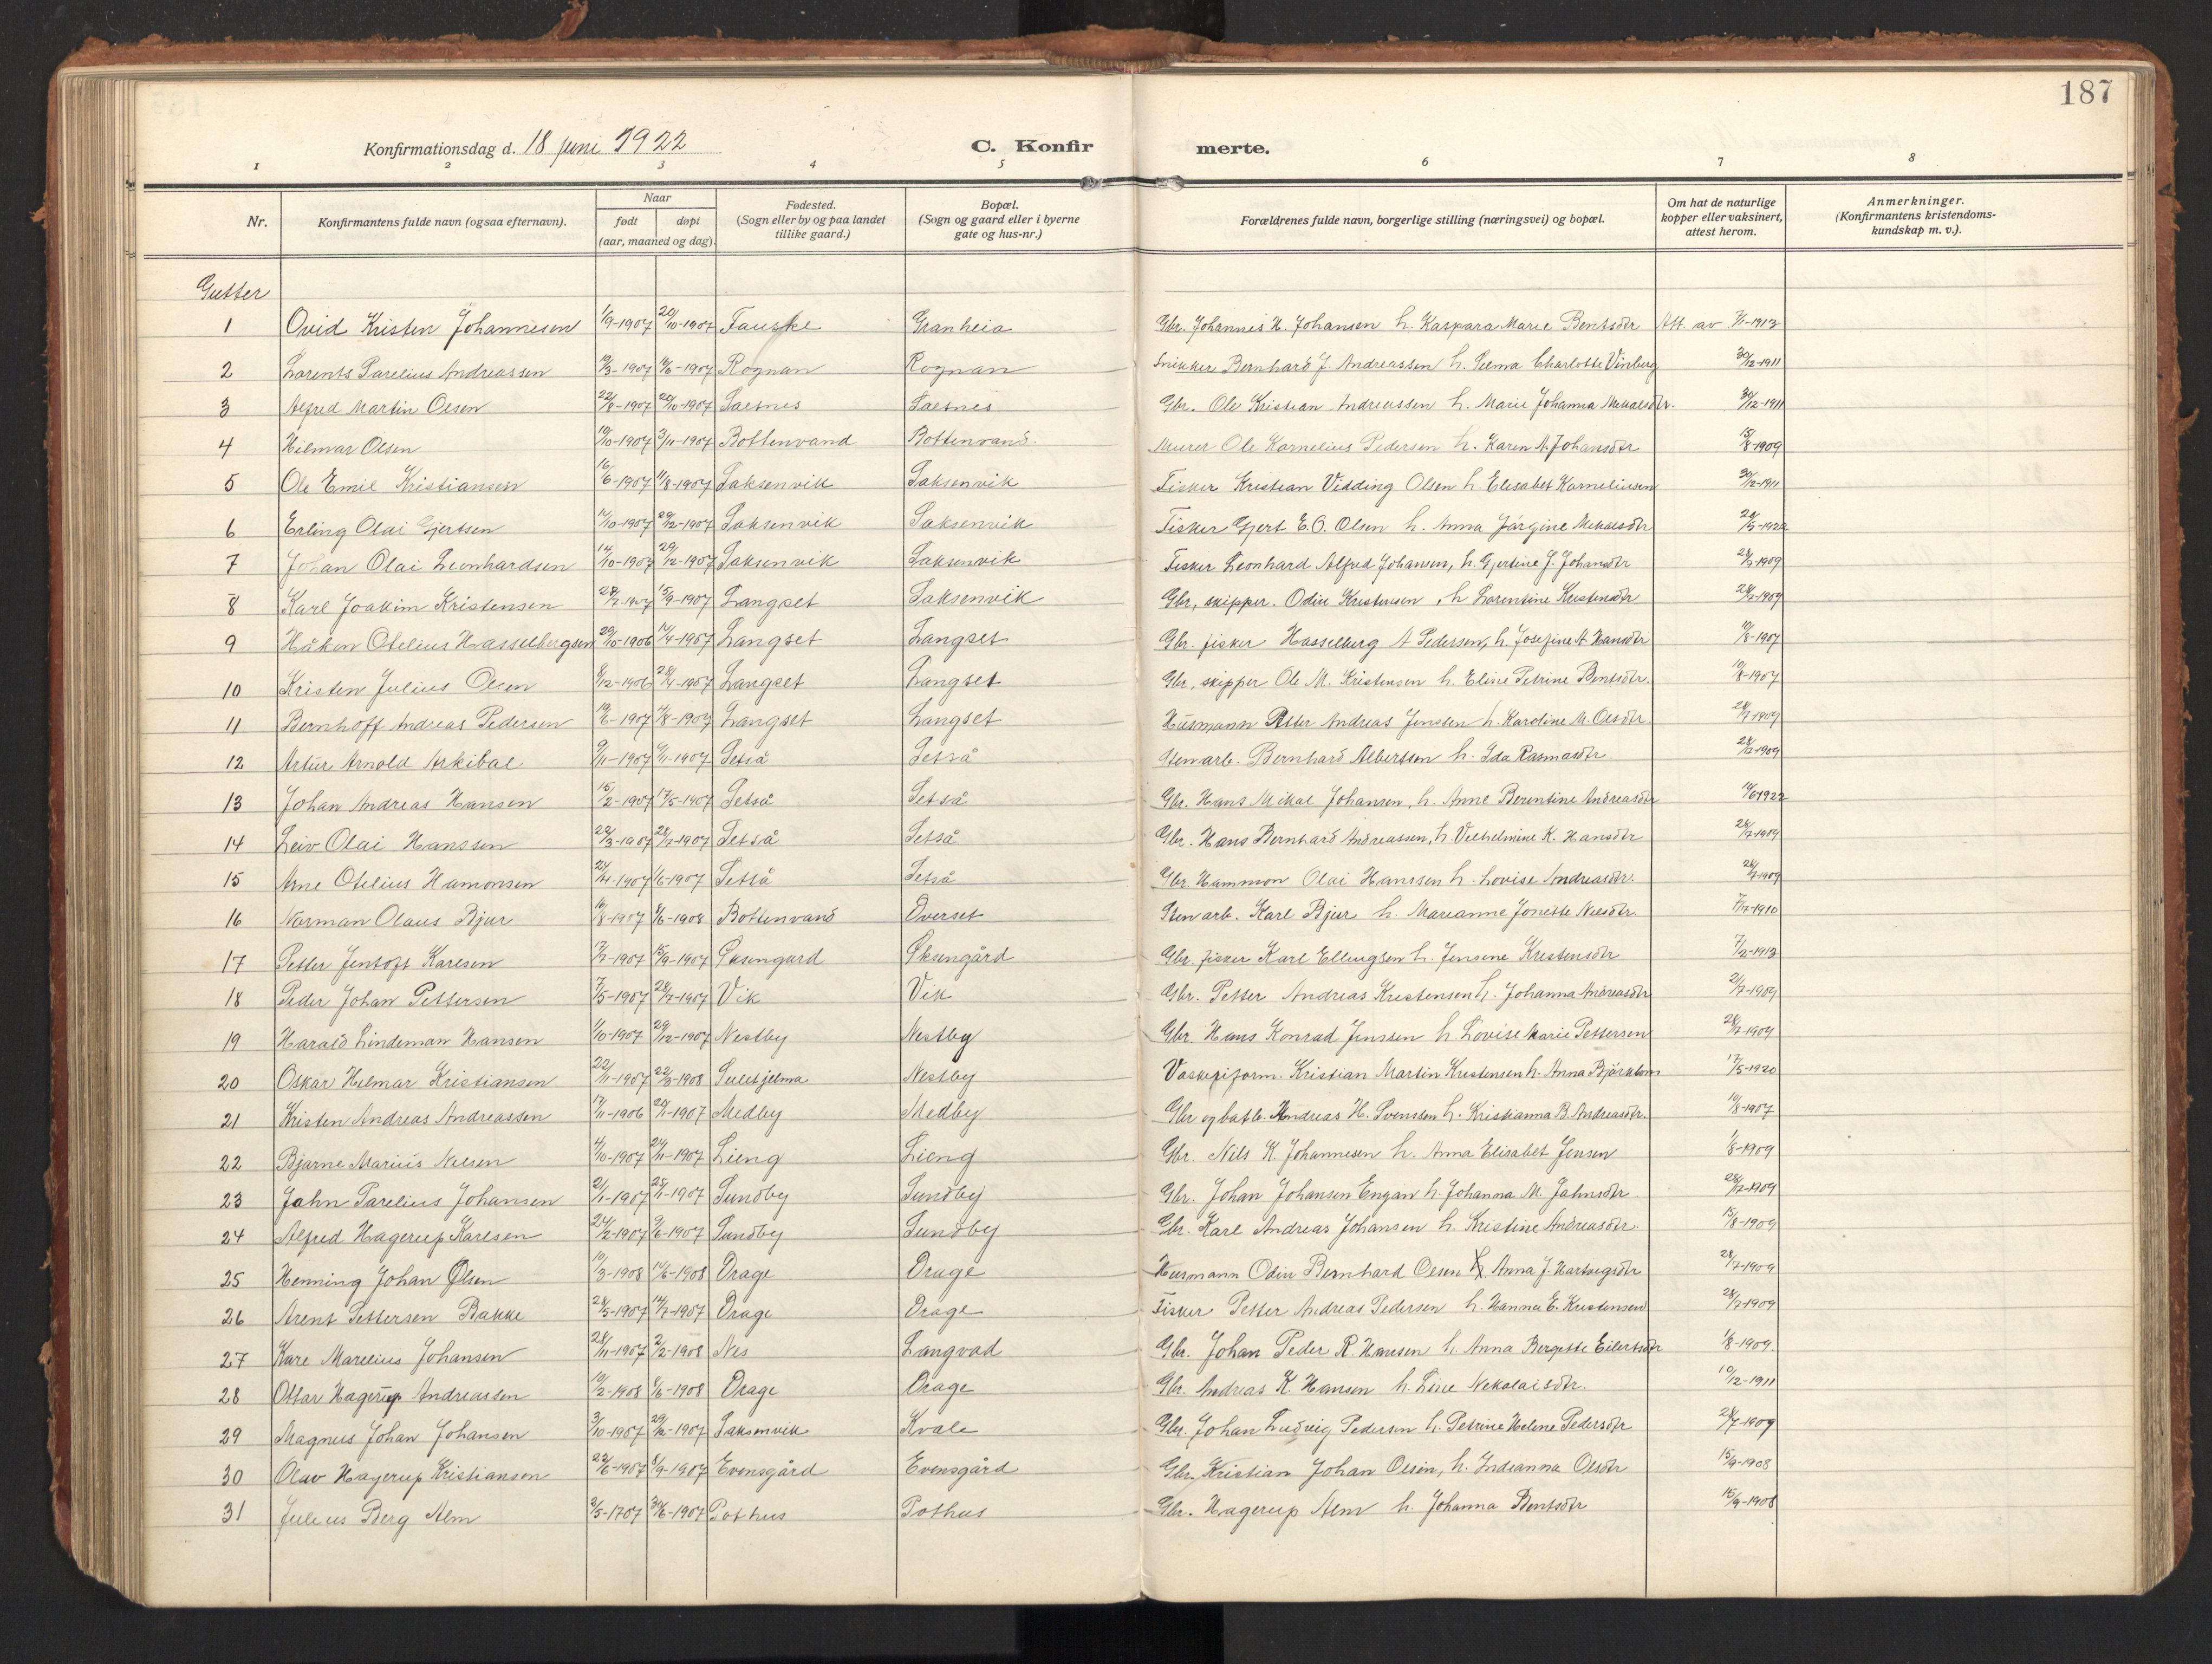 187
Konfirmationsdag d. 18 juni 1922
C. Konfirmerte.
1 2 3 4 5 6 7 8
Nr. Konfirmantens fulde navn (ogsaa efternavn). Naar født døpt (aar, maaned og dag). Fødested. (Sogn eller by og paa landet tillike gaard.) Bopæl. (Sogn og gaard eller i byerne gate og hus-nr.) Forældrenes fulde navn, borgerlige stilling (næringsvei) og bopæl. Om hat de naturlige kopper eller vaksinert, attest herom. Anmerkninger. (Konfirmantens kristendoms-kundskap m. v.).
Gutter
1 Ovid Kristen Johannesen 1/9-1907 20/10-1907 Fauske Granheia Gbr. Johannes H. Johansen h. Kaspara Marie Bentsdtr Att. av 7/1-1913
2 Lorents Parelius Andreassen 19/3-1907 16/6-1907 Rognan Rognan Snikker Bernhard J. Andreassen h. Selma Charlotte Vinberg 30/12-1911
3 Alfred Martin Olsen 22/8-1907 20/10-1907 Saetnes Saetnes Gbr. Ole Kristian Andreassen h. Marie Johanna Mikalsdtr. 30/12-1911
4 Hilmar Olsen 19/10-1907 3/11-1907 Bottenvand Bottenvand. Murer Ole Kornelius Pedersen h. Karen A. Johansdtr 15/8-1909
5 Ole Emil Kristiansen 16/6-1907 11/8-1907 Saksenvik Saksenvik Fisker Kristian Vidding Olsen h. Elisabet Korneliussen 30/12-1911
6 Erling Olai Gjertsen 14/10-1907 29/12-1907 Saksenvik Saksenvik Fisker Gjert E. O. Olsen h. Anna Jørgine Mikalsdtr
7 Johan Olai Leonhardsen 14/10-1907 29/12-1907 Saksenvik Saksenvik Fisker Leonhard Alfred Johansen, h. Gjertine J. Johansdtr 28/7-1909
8 Karl Joakim Kristensen 28/7-1907 15/9-1907 Langset Saksenvik Gbr, skipper. Odin Kristensen, h Lorentine Kristensdtr 28/7-1909
9 Håkon Otelius Hasselbergsen 29/10-1906 14/4-1907 Langset Langset Gbr. fisker Hasselberg A Pedersen, h. Josefine A Hansdtr 10/8-1907
10 Kristen Julius Olsen 8/12-1906 28/4-1907 Langset Langset Gbr, skipper Ole M. Kristensen h. Eline Petrine Bentsdtr. 10/8-1907
11 Bernhoff Andreas Pedersen 19/6-1907 4/8-1907 Langset Langset Husmann Peter Andreas Jensen h. Karoline M. Olsdtr. 28/7-1909
12 Artur Arnold Arkibal 9/11-1907 Setså Setså Stenarb. Bernhard Albertsen h. Ida Rasmusdtr
13 Johan Andreas Hansen 15/2-1907 17/5-1907 Setså Setså Gbr. Hans Mikal Johansen, h. Anne Berentine Andreasdtr
14 Leiv Olai Hanssen 29/3-1907 28/7-1907 Setså Setså Gbr. Hans Bernhard Andreassen, h. Vilhelmine K. Hansdtr 28/7-1909
15 Arne Otelius Hamonsen 24/4-1907 Setså Setså Gbr. Hammon Olai Hanssen h. Lovise Andreasdtr. 28/7-1909
16 Norman Olaus Bjur 16/8-1907 8/6-1908 Bottenvand Överset Stenarb. Karl Bjur h. Marianne Jonette Nilsdtr. 7/7-1910
17 Petter Jentoft Karlsen 17/7-1907 15/9-1907 Øksengård Øksengård Gbr. fisker Karl Ellingsen h. Jensine Kristensdtr 7/2-1913
18 Peder Johan Pettersen 7/5-1907 28/7-1907 Vik Vik Gbr. Petter Andreas Kristensen h. Johanna Andreasdtr 2/7-1909
19 Harald Lindeman Hansen 1/10-1907 29/12-1907 Nestby Nestby Gbr. Hans Konrad Jenssen h. Lovise Marie Pettersen 28/7-1909
20 Oskar Hilmar Kristiansen 22/11-1907 22/3-1908 Sulitjelma Nestby Vaskeriform. Kristian Martin Kristensen h. Anna Björklom 17/5-1920
21 Kristen Andreas Andreassen 17/11-1906 20/1-1907 Medby Medby Gbr og båtb. Andreas H. Svenssen h. Kristianna B. Andreasdtr. 10/8-1907
22 Bjarne Marius Nilsen 4/10-1907 24/11-1907 Lieng Lieng Gbr. Nils K. Johannesen h. Anna Elisabet Jensen 1/8-1909
23 Jahn Parelius Johansen 2/1-1907 Sundby Sundby Gbr. Johan Johansen Engan h. Johanna M. Jahnsdtr. 28/7-1909
24 Alfred Hagerup Karlsen 24/2-1907 9/6-1907 Sundby Sundby Gbr. Karl Andreas Johansen h. Kristine Andreasdtr. 15/8-1909
25 Henning Johan Olsen 10/3-1908 14/6-1908 Drage Drage Husmann Odin Bernhard Olsen h. Anna J. Hartvigsdtr 28/7-1909
26 Arent Pettersen Bakke 28/5-1907 14/7-1907 Drage Drage Fisker Petter Andreas Pedersen h. Hanna E. Kristensen 28/7-1909
27 Kåre Marelius Johansen 28/11-1907 2/2-1908 Nes Langvad Gbr. Johan Peder R. Hansen h. Anna Bergitte Eilertsdtr 1/8-1909.
28 Ottar Hagerup Andreassen 10/2-1908 8/6-1908 Drage Drage Gbr. Andreas K. Hansen h. Line Nekolaisdtr. 10/12-1911
29 Magnus Johan Johansen 3/10-1907 29/12-1907 Saksenvik Kvale Gbr. Johan Ludvig Pedersen h. Petrine Helene Pedersdtr 28/7-1909
30 Olav Hagerup Kristiansen 22/6-1907 8/9-1907 Evensgård Evensgård Gbr, Kristian Johan Olsen, h. Indianna Olsdtr 15/9-1908
31 Julius Berg Alm 2/5-1907 30/6-1907 Pothus Pothus Gbr. Hagerup Alm h. Johanna Bentsdtr 15/9-1908